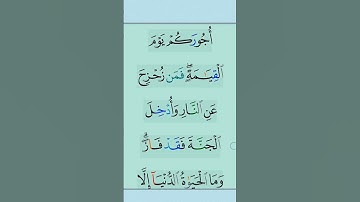 أُجُورَكُمْ يَوْمَ
ٱلْقِيَـٰمَةِ ۖ فَمَن زُحْزِحَ
عَنِ ٱلنَّارِ وَأُدْخِلَ
ٱلْجَنَّةَ فَقَدْ فَازَ ۗ
وَمَا ٱلْحَيَوٰةُ ٱلدُّنْيَآ إِلَّا